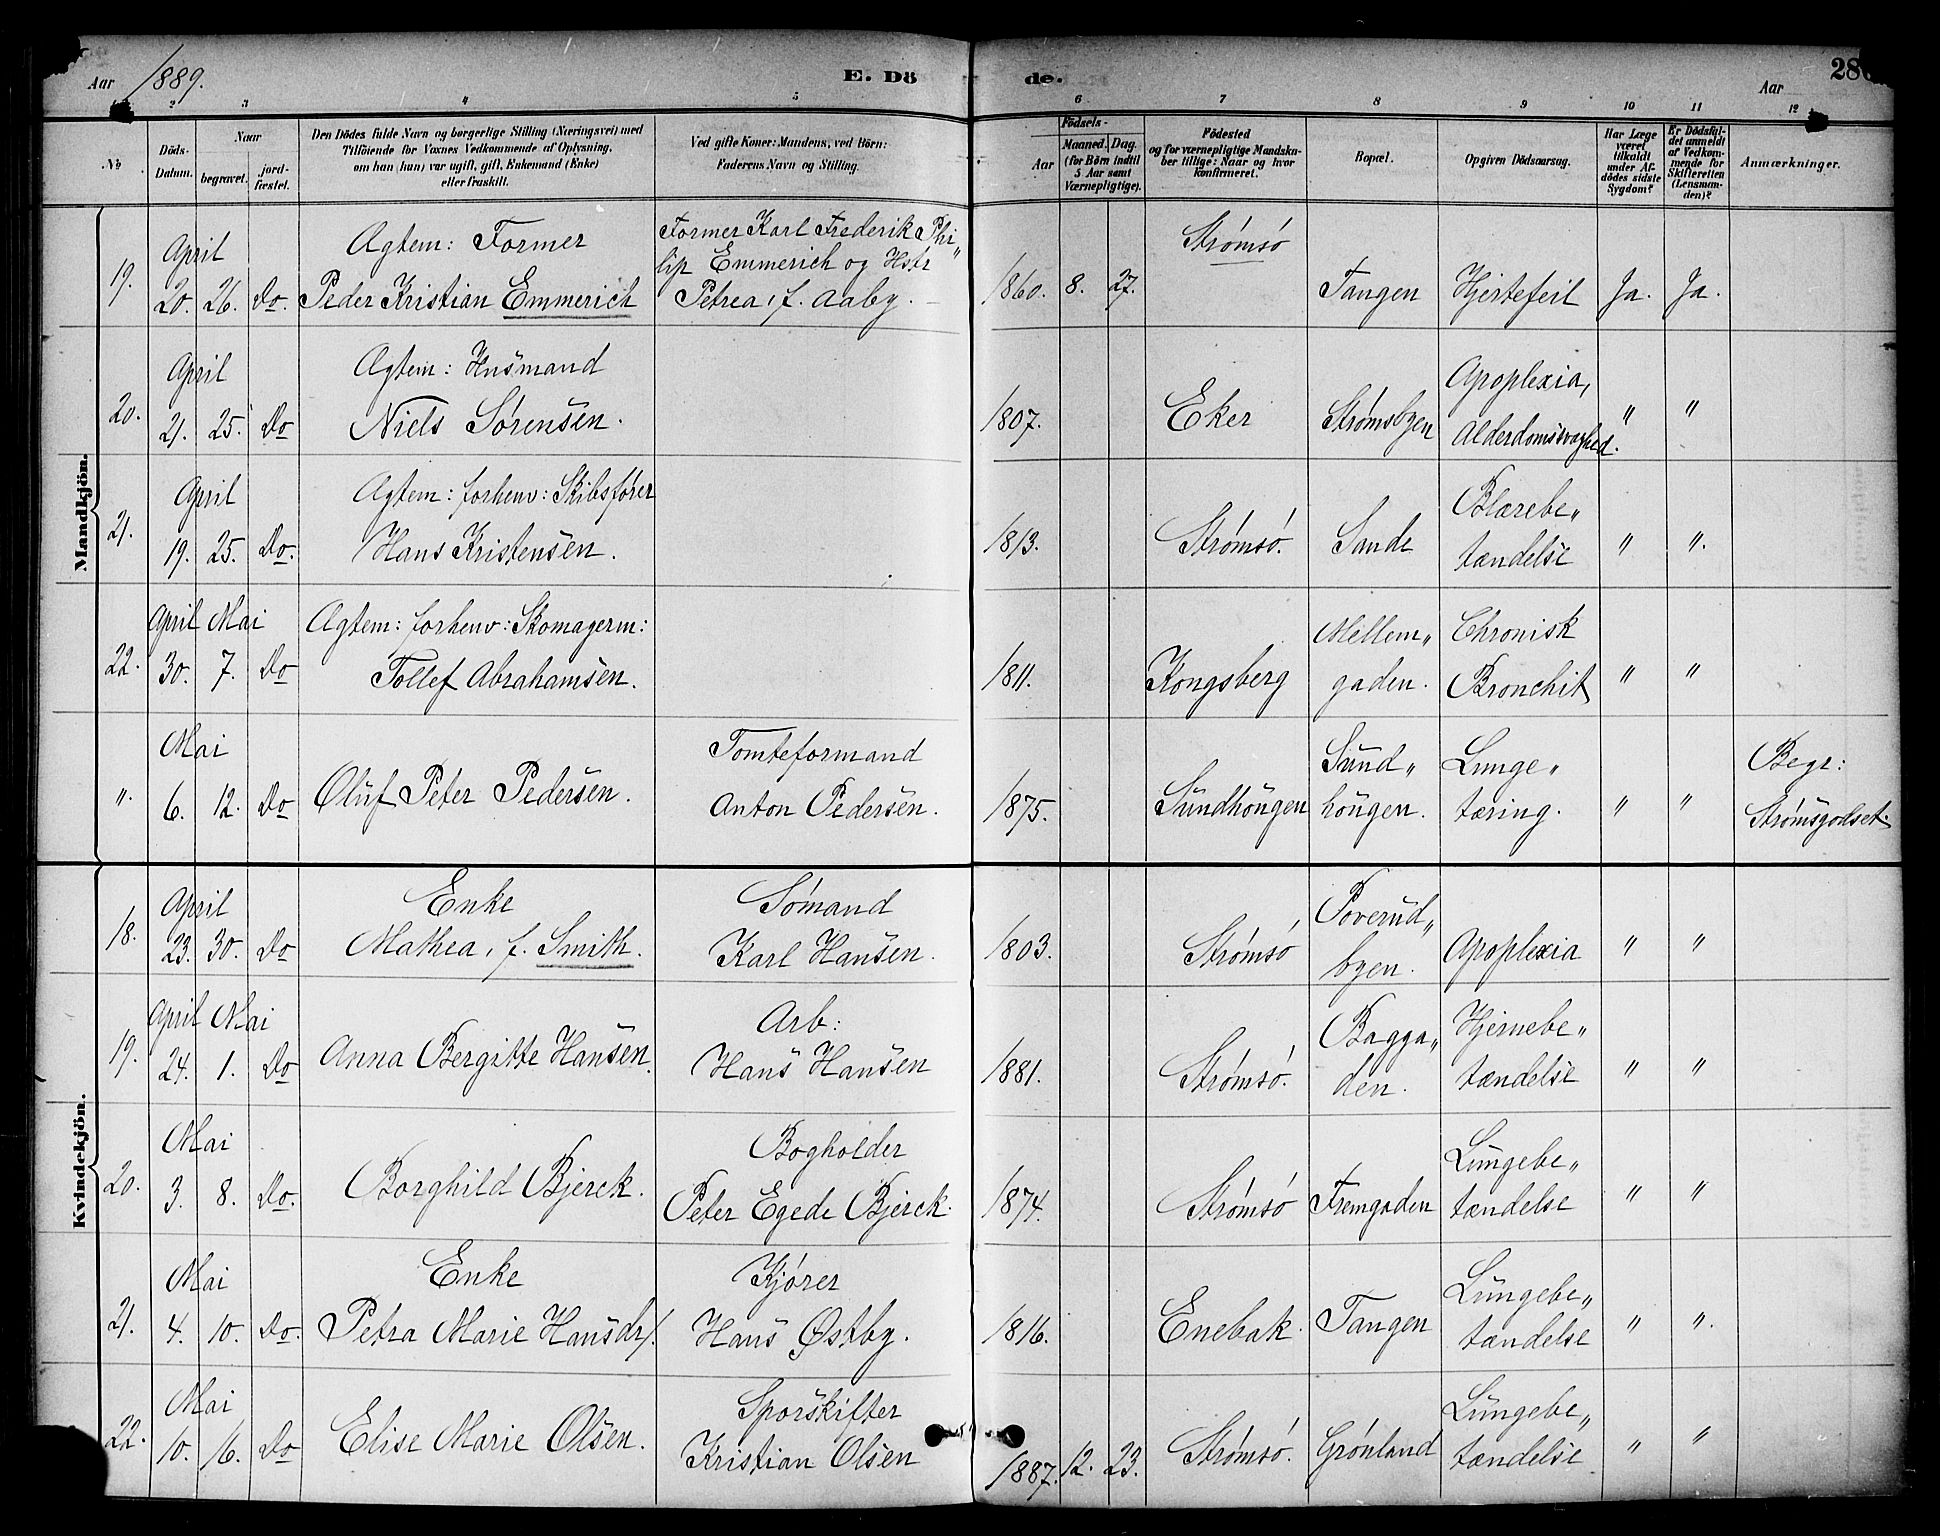 Aar 1889. E. Dö de. Aar 28
1 2 3 4 5 6 7 8 9 10 11 12
No
Döds-Datum.
Naar
begravet.
jordfæstet.
Den Dödes fulde Navn og borgerlige Stilling (Næringsvei) med
Tilföiende for Voxnes Vedkommende af Oplysning,
om han (hun) var ugift, gift, Enkemand (Enke)
eller fraskilt.
Ved gifte Koner: Mandens, ved Börn:
Faderens Navn og Stilling.
Födsels-
Aar
Maaned. Dag.
(for Börn indtil
5 Aar samt
Værnepligtige).
Födested
og for værnepligtige Mandskaber tillige: Naar og hvor
konfirmeret.
Bopæl.
Opgiven Dödsaarsag.
Har Læge
været
tilkaldt
under Afdödes sidste
Sygdom?
Er Dödsfaldet anmeldt
af Vedkommende for
Skifteretten
(Lensmanden)?
Anmærkninger.
Mandkjön.
April Ægtem: Former Former Karl Frederik Phi„ Strømsø
lip Emmerich og Hstr
19. 20. 26. Do. Peder Kristian Emmerich Petrea, f. Aaby. 1860. 8. 27. Tangen Hjertefeil Ja. Ja.
April Ægtem: Husmand Apoplexia,
20. 21. 25. Do Niels Sørensen. 1807. Eker Strømsbyen Alderdomssvaghed. „ „
April Ægtem: forhenv: Skibsfører Blærebe„
21. 19. 25. Do. Hans Kristensen. 1813. Strømsø. Sande tændelse „ „.
April Mai Ægtem: forhenv: Skomagerm: Mellem„ Chronisk
22. 30. 7. Do Tollef Abrahamsen. 1811. Kongsberg gaden. Bronchit „ „
Mai Tomteformand Sund„ Lunge„ Begr:
„. 6. 12. Do Oluf Peter Pedersen. Anton Pedersen. 1875. Sundhougen hougen. tæring. „ „ Strømsgodset.
Kvindekjön.
April Enke Sømand Toverud„
18. 23. 30. Do Mathea, f. Smith. Karl Hansen. 1803. Strømsø byen. Apoplexia „ „
April Mai Arb: Bagga„ Hjernebe„
19. 24. 1. Do Anna Bergitte Hansen. Hans Hansen 1881. Strømsø. den. tændelse „ „
Mai Bogholder Lungebe„
20. 3. 8. Do. Borghild Bjerck. Peter Egede Bjerck. 1874. Strømsø Fremgaden tændelse „ „
Mai Enke Kjører Lungebe„
21. 4. 10. Do. Petra Marie Hansdr/. Hans Østby. 1816. Enebak. Tangen tændelse „ „.
Mai Sporskifter Lungebe„
22. 10. 16. Do Elise Marie Olsen. Kristian Olsen 1887. 12. 23. Strømsø. Grønland tændelse „ „